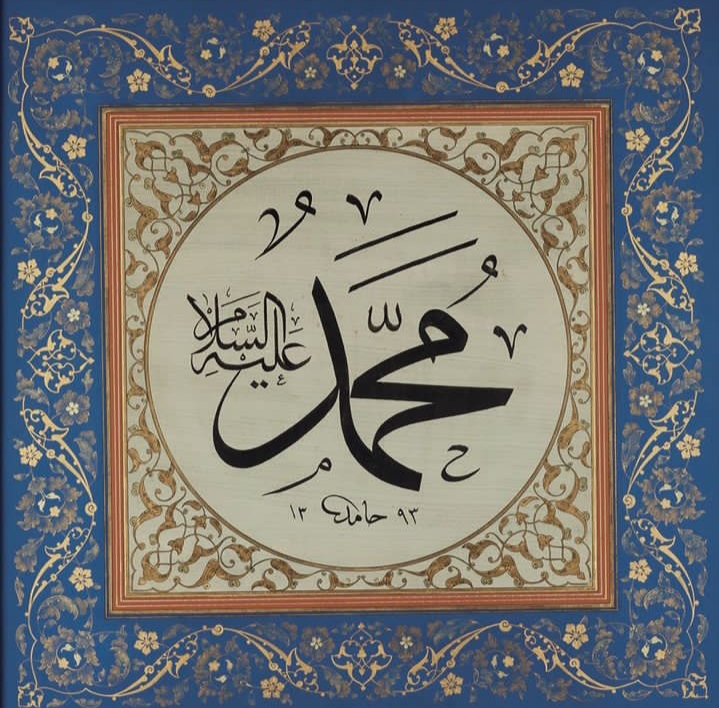 مُحَمَّدٌ
عَلَيْهِ السَّلَام
١٣ حامد ٩٣